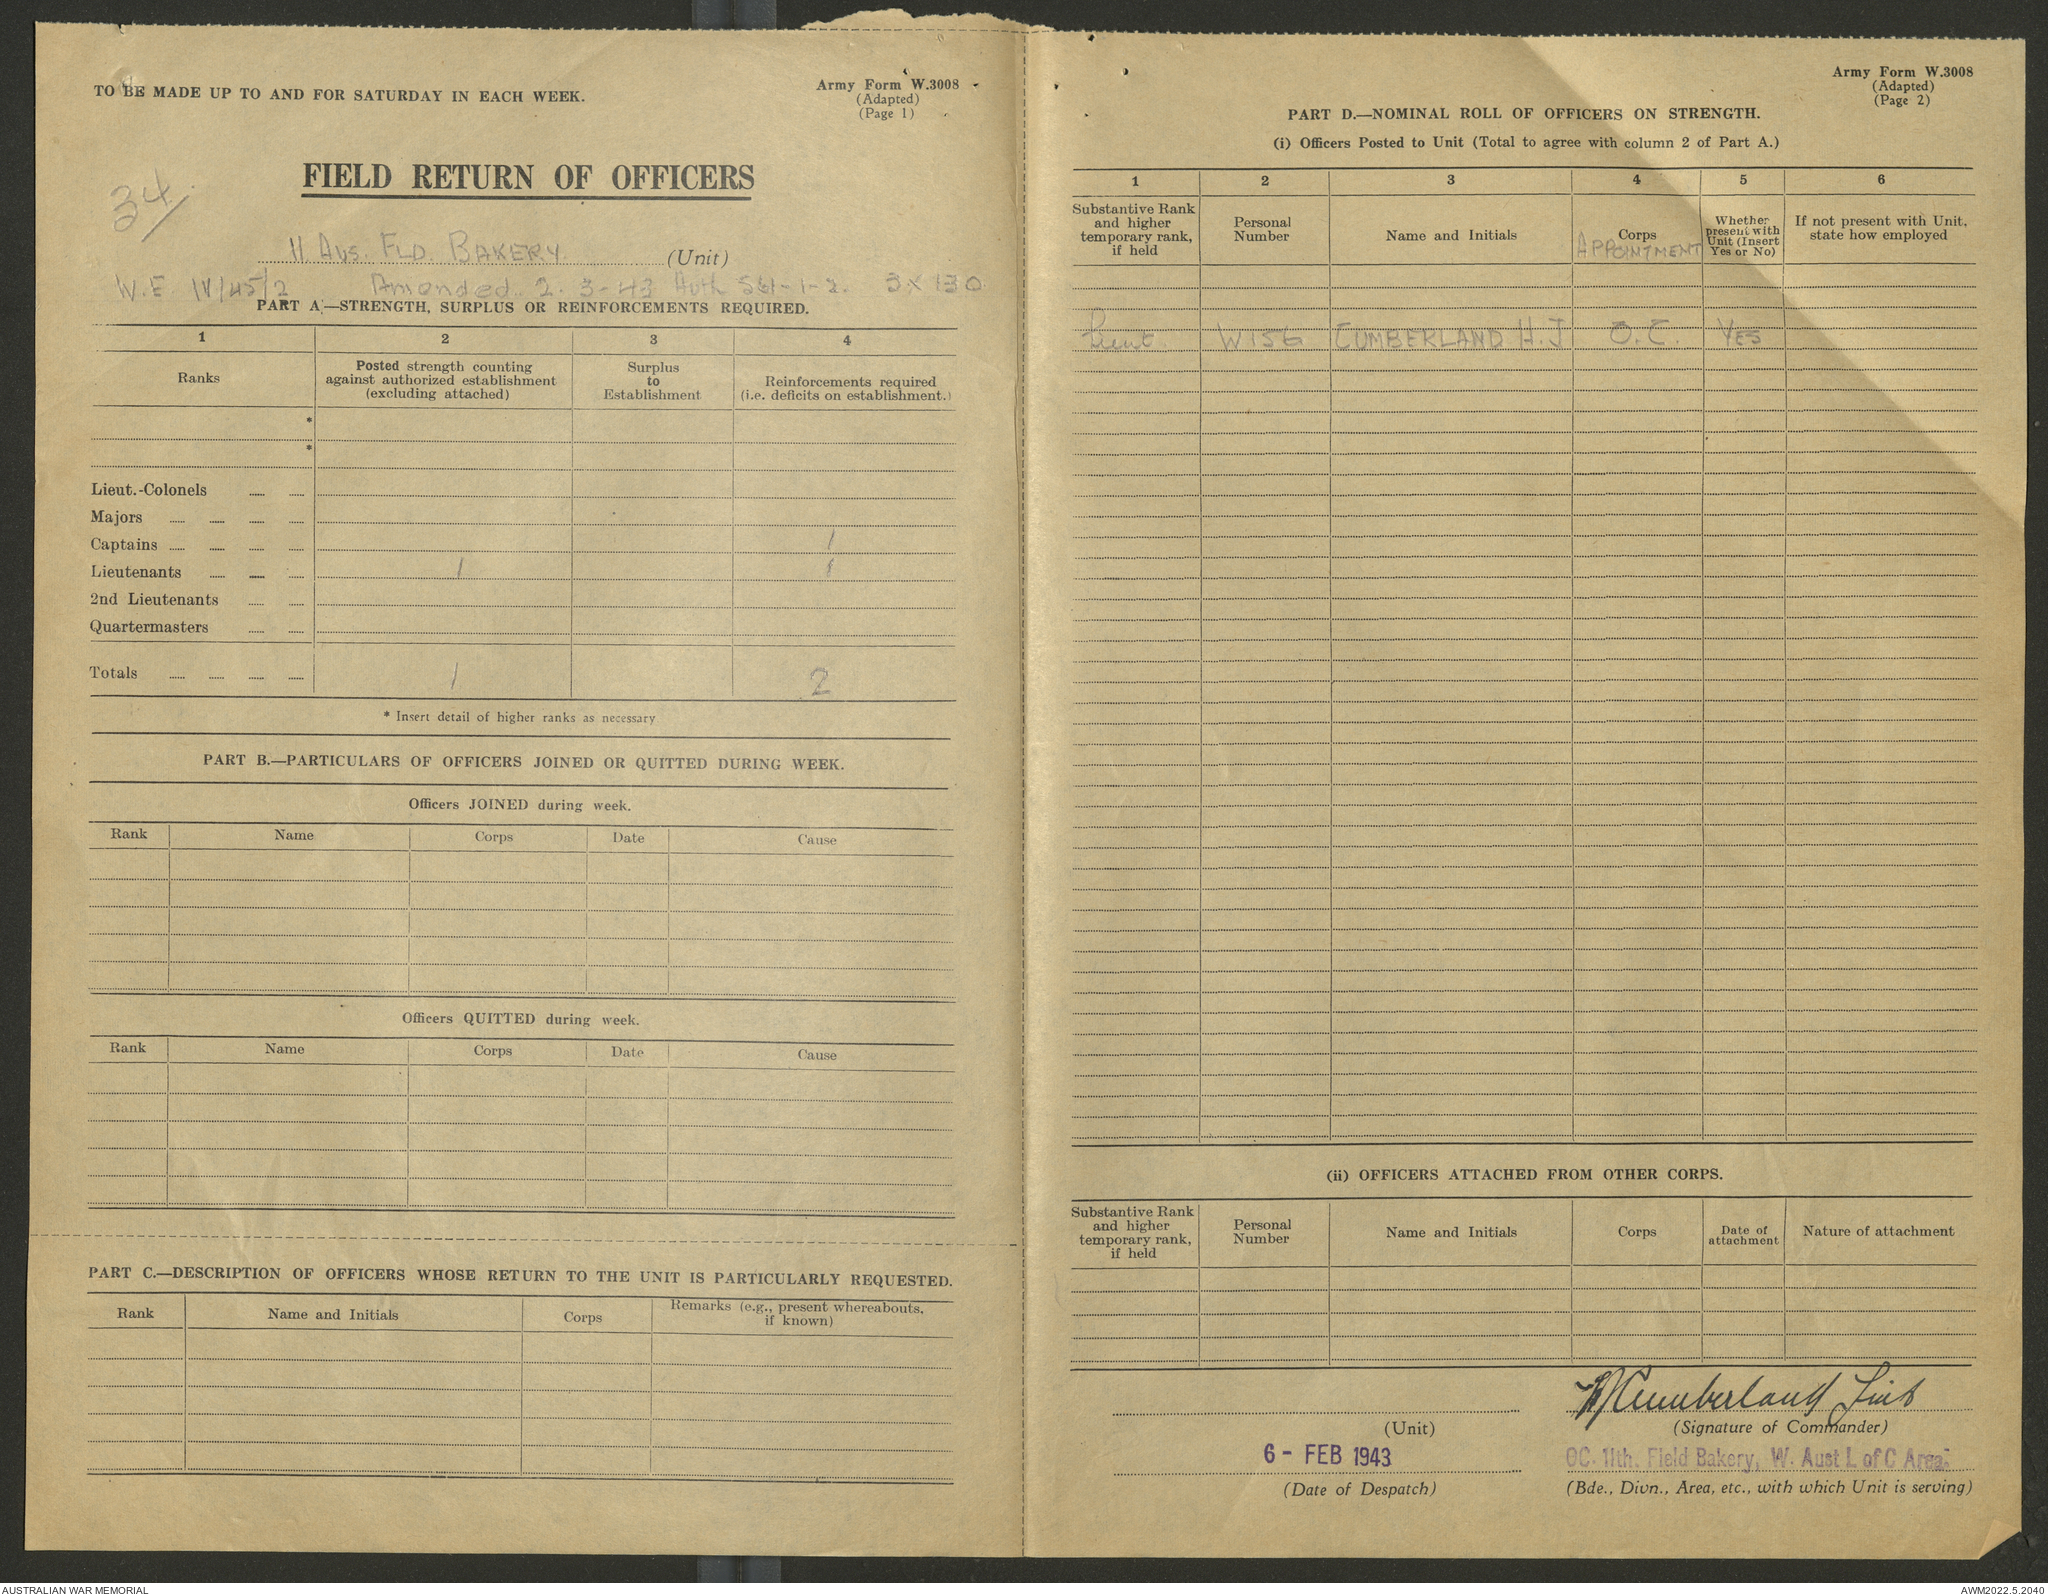 TO BE MADE UP TO AND FOR SATURDAY IN EACH WEEK.
Army Form W.3008
(Adapted)
(Page 1)
34/
FIELD RETURN OF OFFICERS
11 AUS. FLD. BAKERY (Unit)
W.E. IV/45/2 Amended 2-3-43 Auth 1-1-2. 3 X 130
PART A.—STRENGTH, SURPLUS OR REINFORCEMENTS REQUIRED.
1 2 3 4
Ranks
Posted strength counting
against authorized establishment
(excluding attached)
Surplus
to
Establishment
Reinforcements required
(i.e. deficits on establishment.)
*
*
Lieut.-Colonels
Majors
Captains 1
Lieutenants 1 1
2nd Lieutenants
Quartermasters
Totals 1 2
* Insert detail of higher ranks as necessary
PART B.—PARTICULARS OF OFFICERS JOINED OR QUITTED DURING WEEK.
Officers JOINED during week.
Rank Name Corps Date Cause
Officers QUITTED during week.
Rank Name Corps Date Cause
PART C.—DESCRIPTION OF OFFICERS WHOSE RETURN TO THE UNIT IS PARTICULARLY REQUESTED.
Rank Name and Initials Corps
Remarks (e.g., present whereabouts,
if known)
Army Form W.3008
(Adapted)
(Page 2)
PART D.—NOMINAL ROLL OF OFFICERS ON STRENGTH.
(i) Officers Posted to Unit (Total to agree with column 2 of Part A.)
1 2 3 4 5 6
Substantive Rank
and higher
temporary rank,
if held
Personal
Number
Name and Initials
Corps
APPOINTMENT
Whether
present with
Unit (Insert
Yes or No)
If not present with Unit,
state how employed
Lieut. W156 CUMBERLAND H.J O.C. YES
(ii) OFFICERS ATTACHED FROM OTHER CORPS.
Substantive Rank
and higher
temporary rank,
if held
Personal
Number
Name and Initials
Corps
Date of
attachment
Nature of attachment
HJCumberland Lieut
(Unit)
(Signature of Commander)
6 - FEB 1943
OC. 11th. Field Bakery, W. Aust L of C Area.
(Date of Despatch)
(Bde., Divn., Area, etc., with which Unit is serving)
AUSTRALIAN WAR MEMORIAL
AWM2022.5.2040